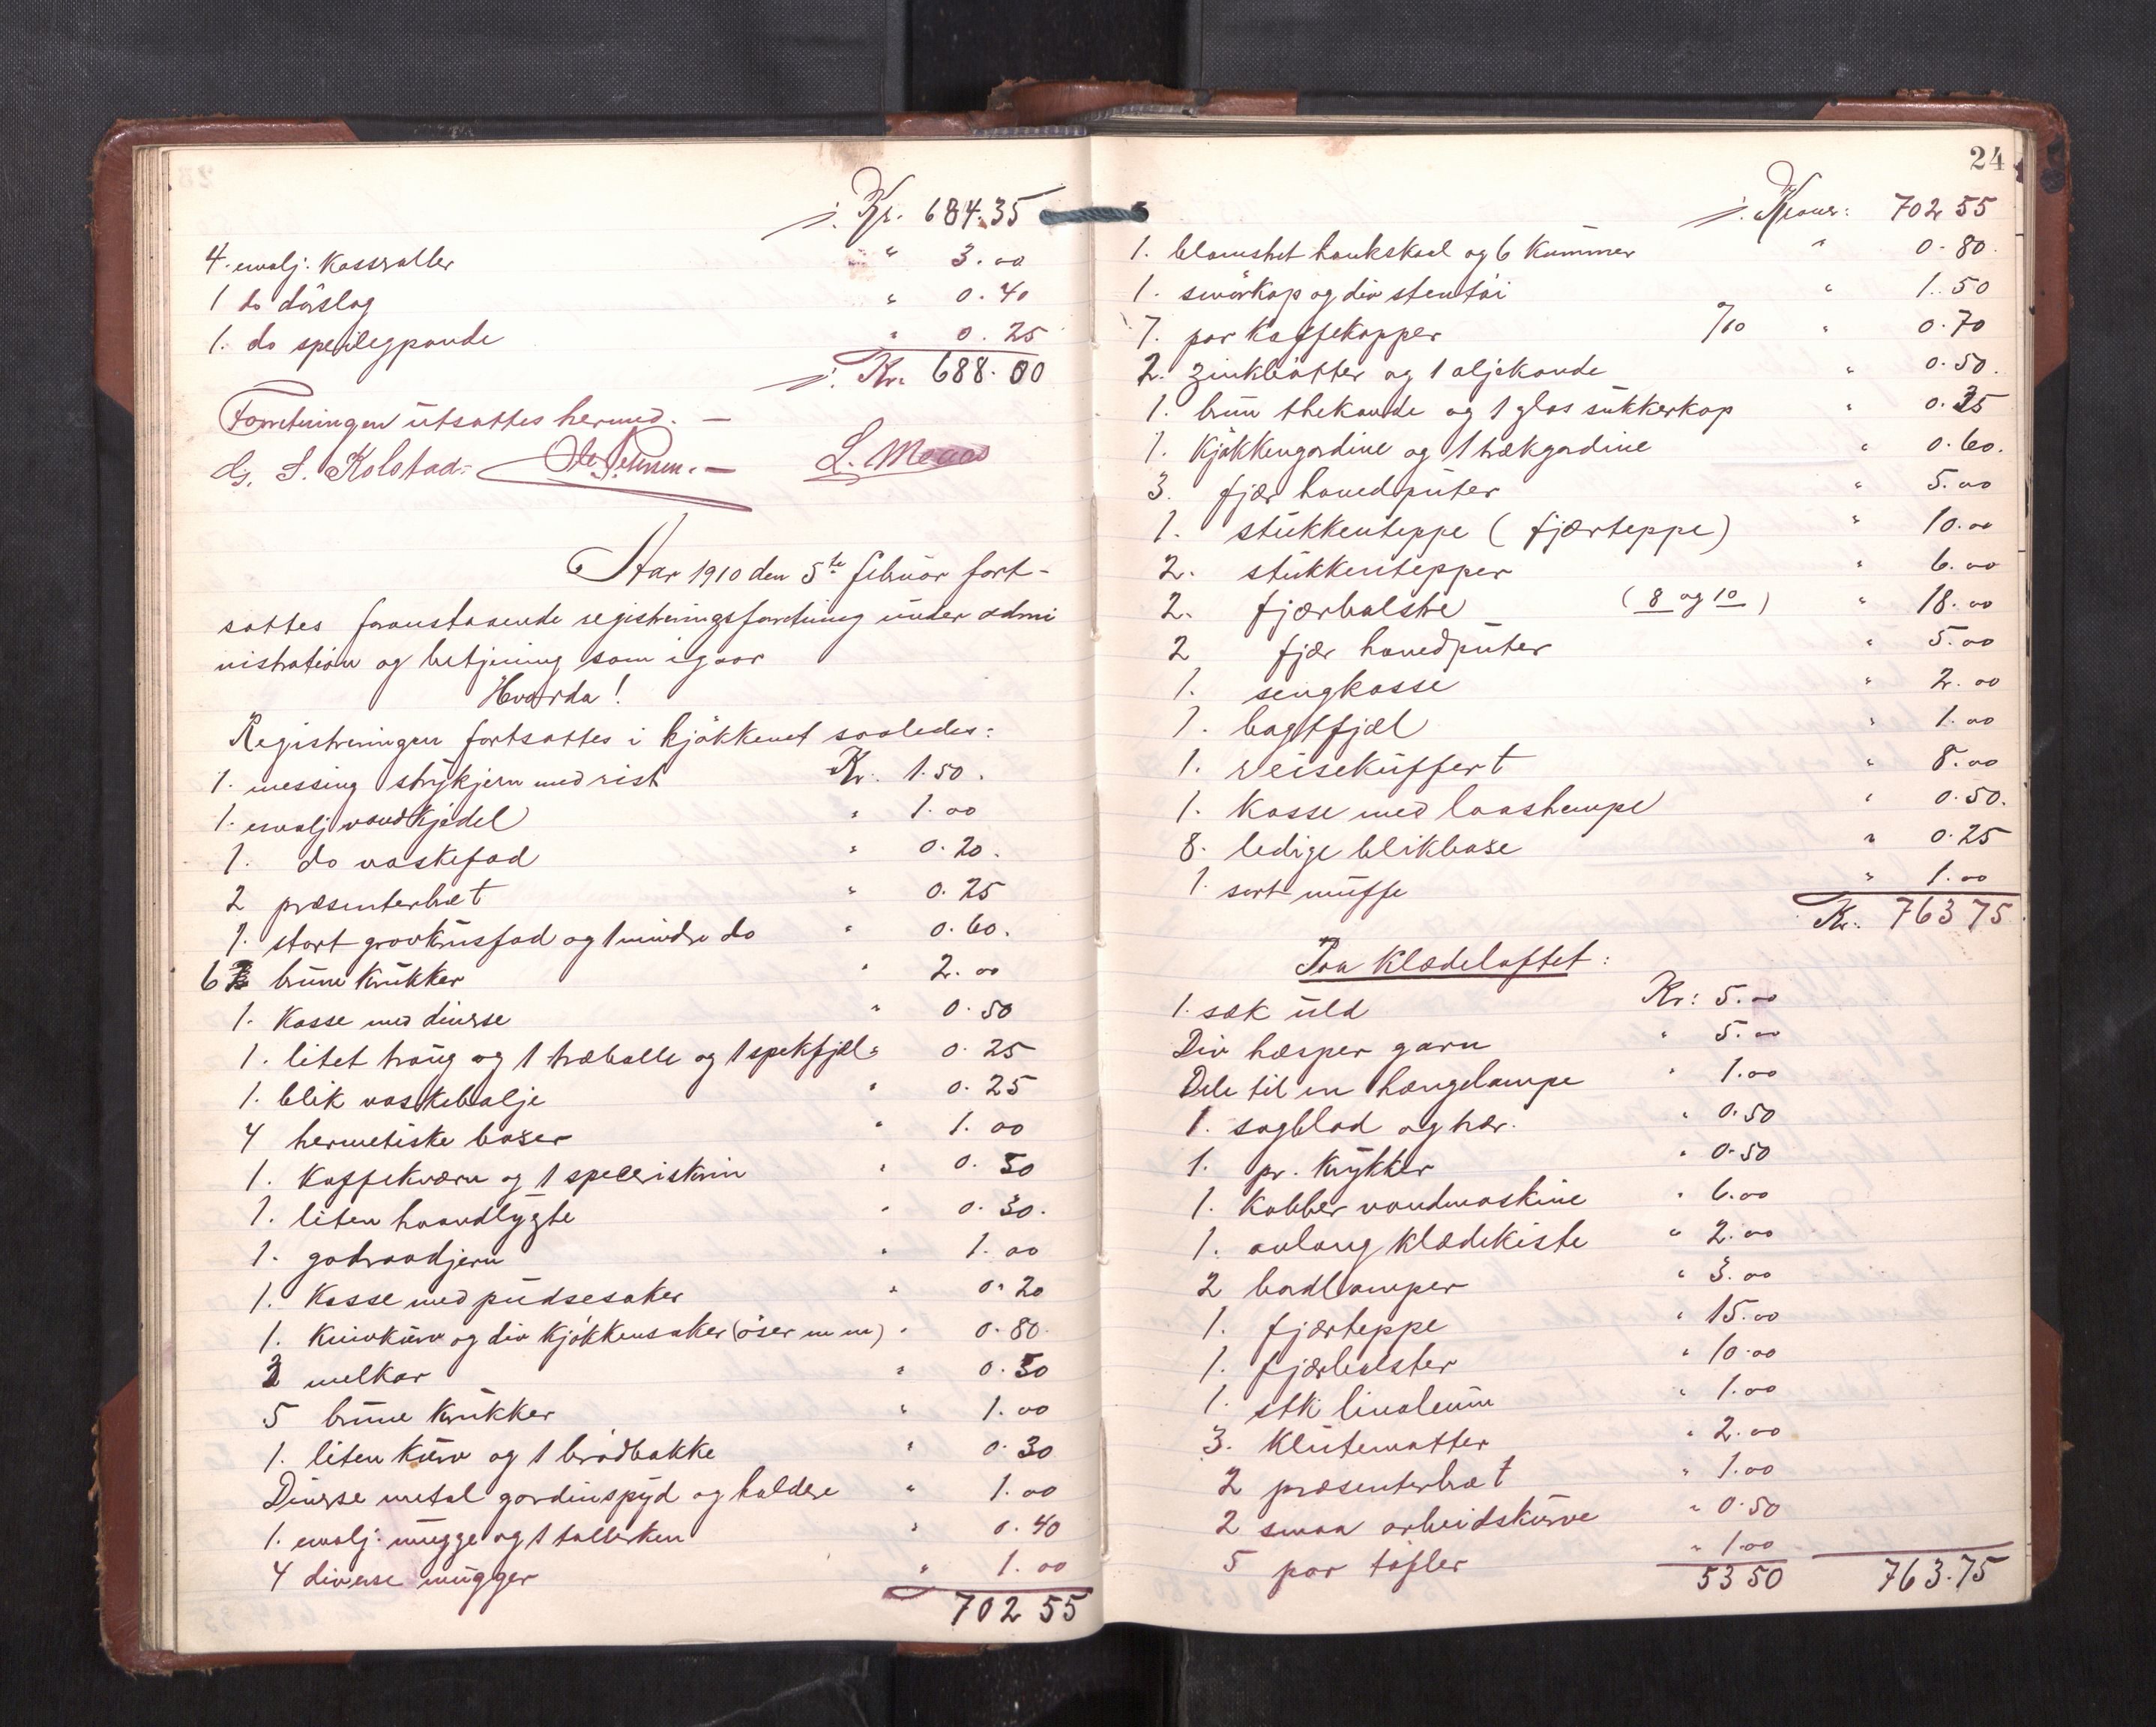 Kr. 684.35
4. emalj: Kasseroller " 3.00
1 do dörslag " 0.40
1. do speilegpande " 0.25
Kr. 688.00
Forretningen utsattes hermed. —
G. S. Kolstad. Ole Petersen. — L. Moaas
Aar 1910 den 5te februar fort-
sattes foranstaaende registreringsforretning under admi
nistration og betjening som igaar
Hvorda!
Registreringen fortsattes i kjökkenet saaledes:
1. messing strykjern med rist Kr. 1.50.
1. emalj vandkjedel " 1.00
1. do vaskefad " 0.20.
2 præsenterbret " 0.25
1. stort grovkrusfad og 1 mindre do " 0.60.
6 brune krukker " 2.00
1. Kasse med diverse " 0.50
1. litet traug og 1 træballe og 1 spekfjæl " 0.25
1. blik vaskebalje " 0.25
4 hermetiske baser " 1.00
1. Kaffekværn og 1 speceriskrin " 0.50
1. liten haandlygte " 0.30.
1. godraadjern " 1.00
1. Kasse med pudsesaker " 0.20
1. Knivkurv og div kjökkensaker (öser m m) " 0.80.
3 melkar " 0.30
5 brune krukker " 1.00
1. liten kurv og 1 brödbakke " 0.30
Diverse metal gardinspyd og holdere " 1.00
1. emalj: mugge og 1 tallerken " 0.40
4 diverse mugger " 1.00
702 55
24
Kroner: 702 55
1. blomstret hankskaal og 6 Kummer " 0.80.
1. smörkop og div stentöi " 1.50
7. par Kaffekopper 7/10 " 0.70
2. zinkbötter og 1 oljekande " 0.50.
1. brun thekande og 1 glas sukkerkop " 0.35
1. Kjökkengardine og 1 trækgardine " 0.60.
3. fjær hovedputer " 5.00
1. stukkenteppe (fjærteppe) " 10.00
2. stukkentepper " 6.00
2. fjærbolstre (8 og 10) " 18.00
2 fjær hovedputer " 5.00
1. sengkasse " 2.00
1. bagtfjæl " 1.00
1. reisekuffert " 8.00
1. Kasse med laashempe " 0.50.
8. ledige blikbase " 0.25
1. sort muffe " 1.00
Kr. 763 75
Paa Klædeloftet:
1. sæk uld Kr: 5.00
Div hæsper garn " 5.00
Dele til en hængelampe " 1.00
1. sagblad og hær. " 0.50
1. pr. Krykker " 0.50
1. Kobber vandmaskine " 6.00
1. avlang klædekiste " 2.00
2 bordlamper " 3.00
1. fjærteppe " 15.00
1. fjærbolster " 10.00
1. stk linoleum " 1.00
3. Klutematter " 2.00
2 præsenterbret " 1.00
2 smaa arbeidskurve " 0.50
5 par töfler " 1.00
53 50 763.75